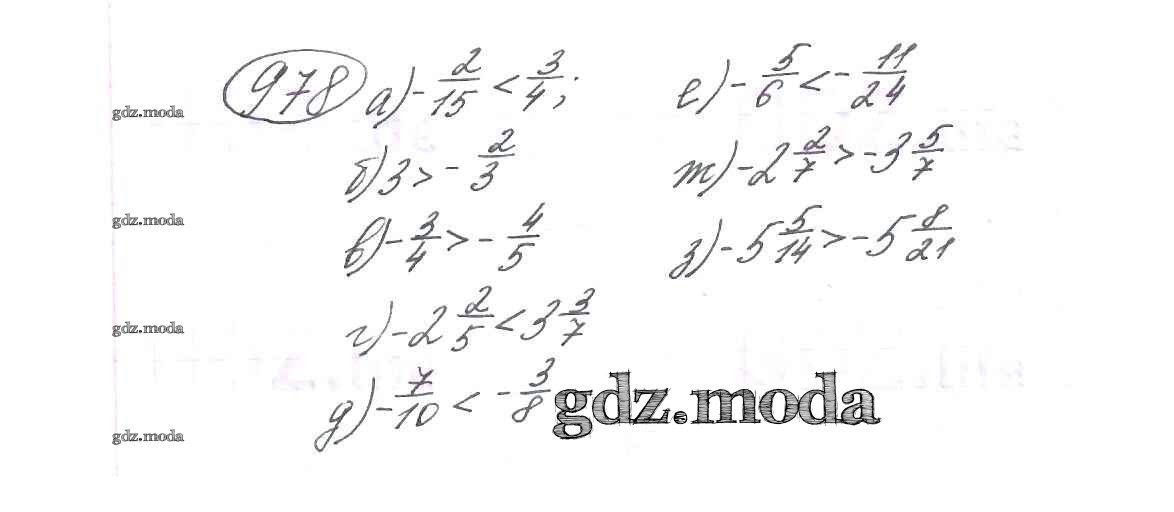 978 а) -2/15 < 3/4;
б) 3 > -2/3
в) -3/4 > -4/5
г) -2 2/5 < 3 3/7
д) -7/10 < -3/8
е) -5/6 < -11/24
ж) -2 2/7 > -3 5/7
з) -5 5/14 > -5 8/21
gdz.moda
gdz.moda
gdz.moda
gdz.moda
gdz.moda